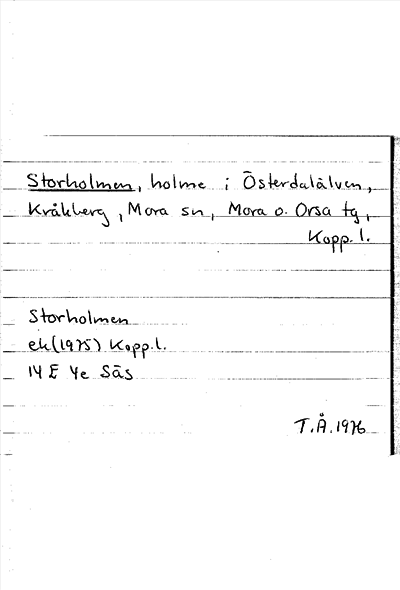 Storholmen, holme i Österdalälven,
Kråkberg, Mora sn, Mora o. Orsa tg,
Kopp. l.
Storholmen
ek (1975) Kopp. l.
14 E 4e Säs
T.Å. 1976